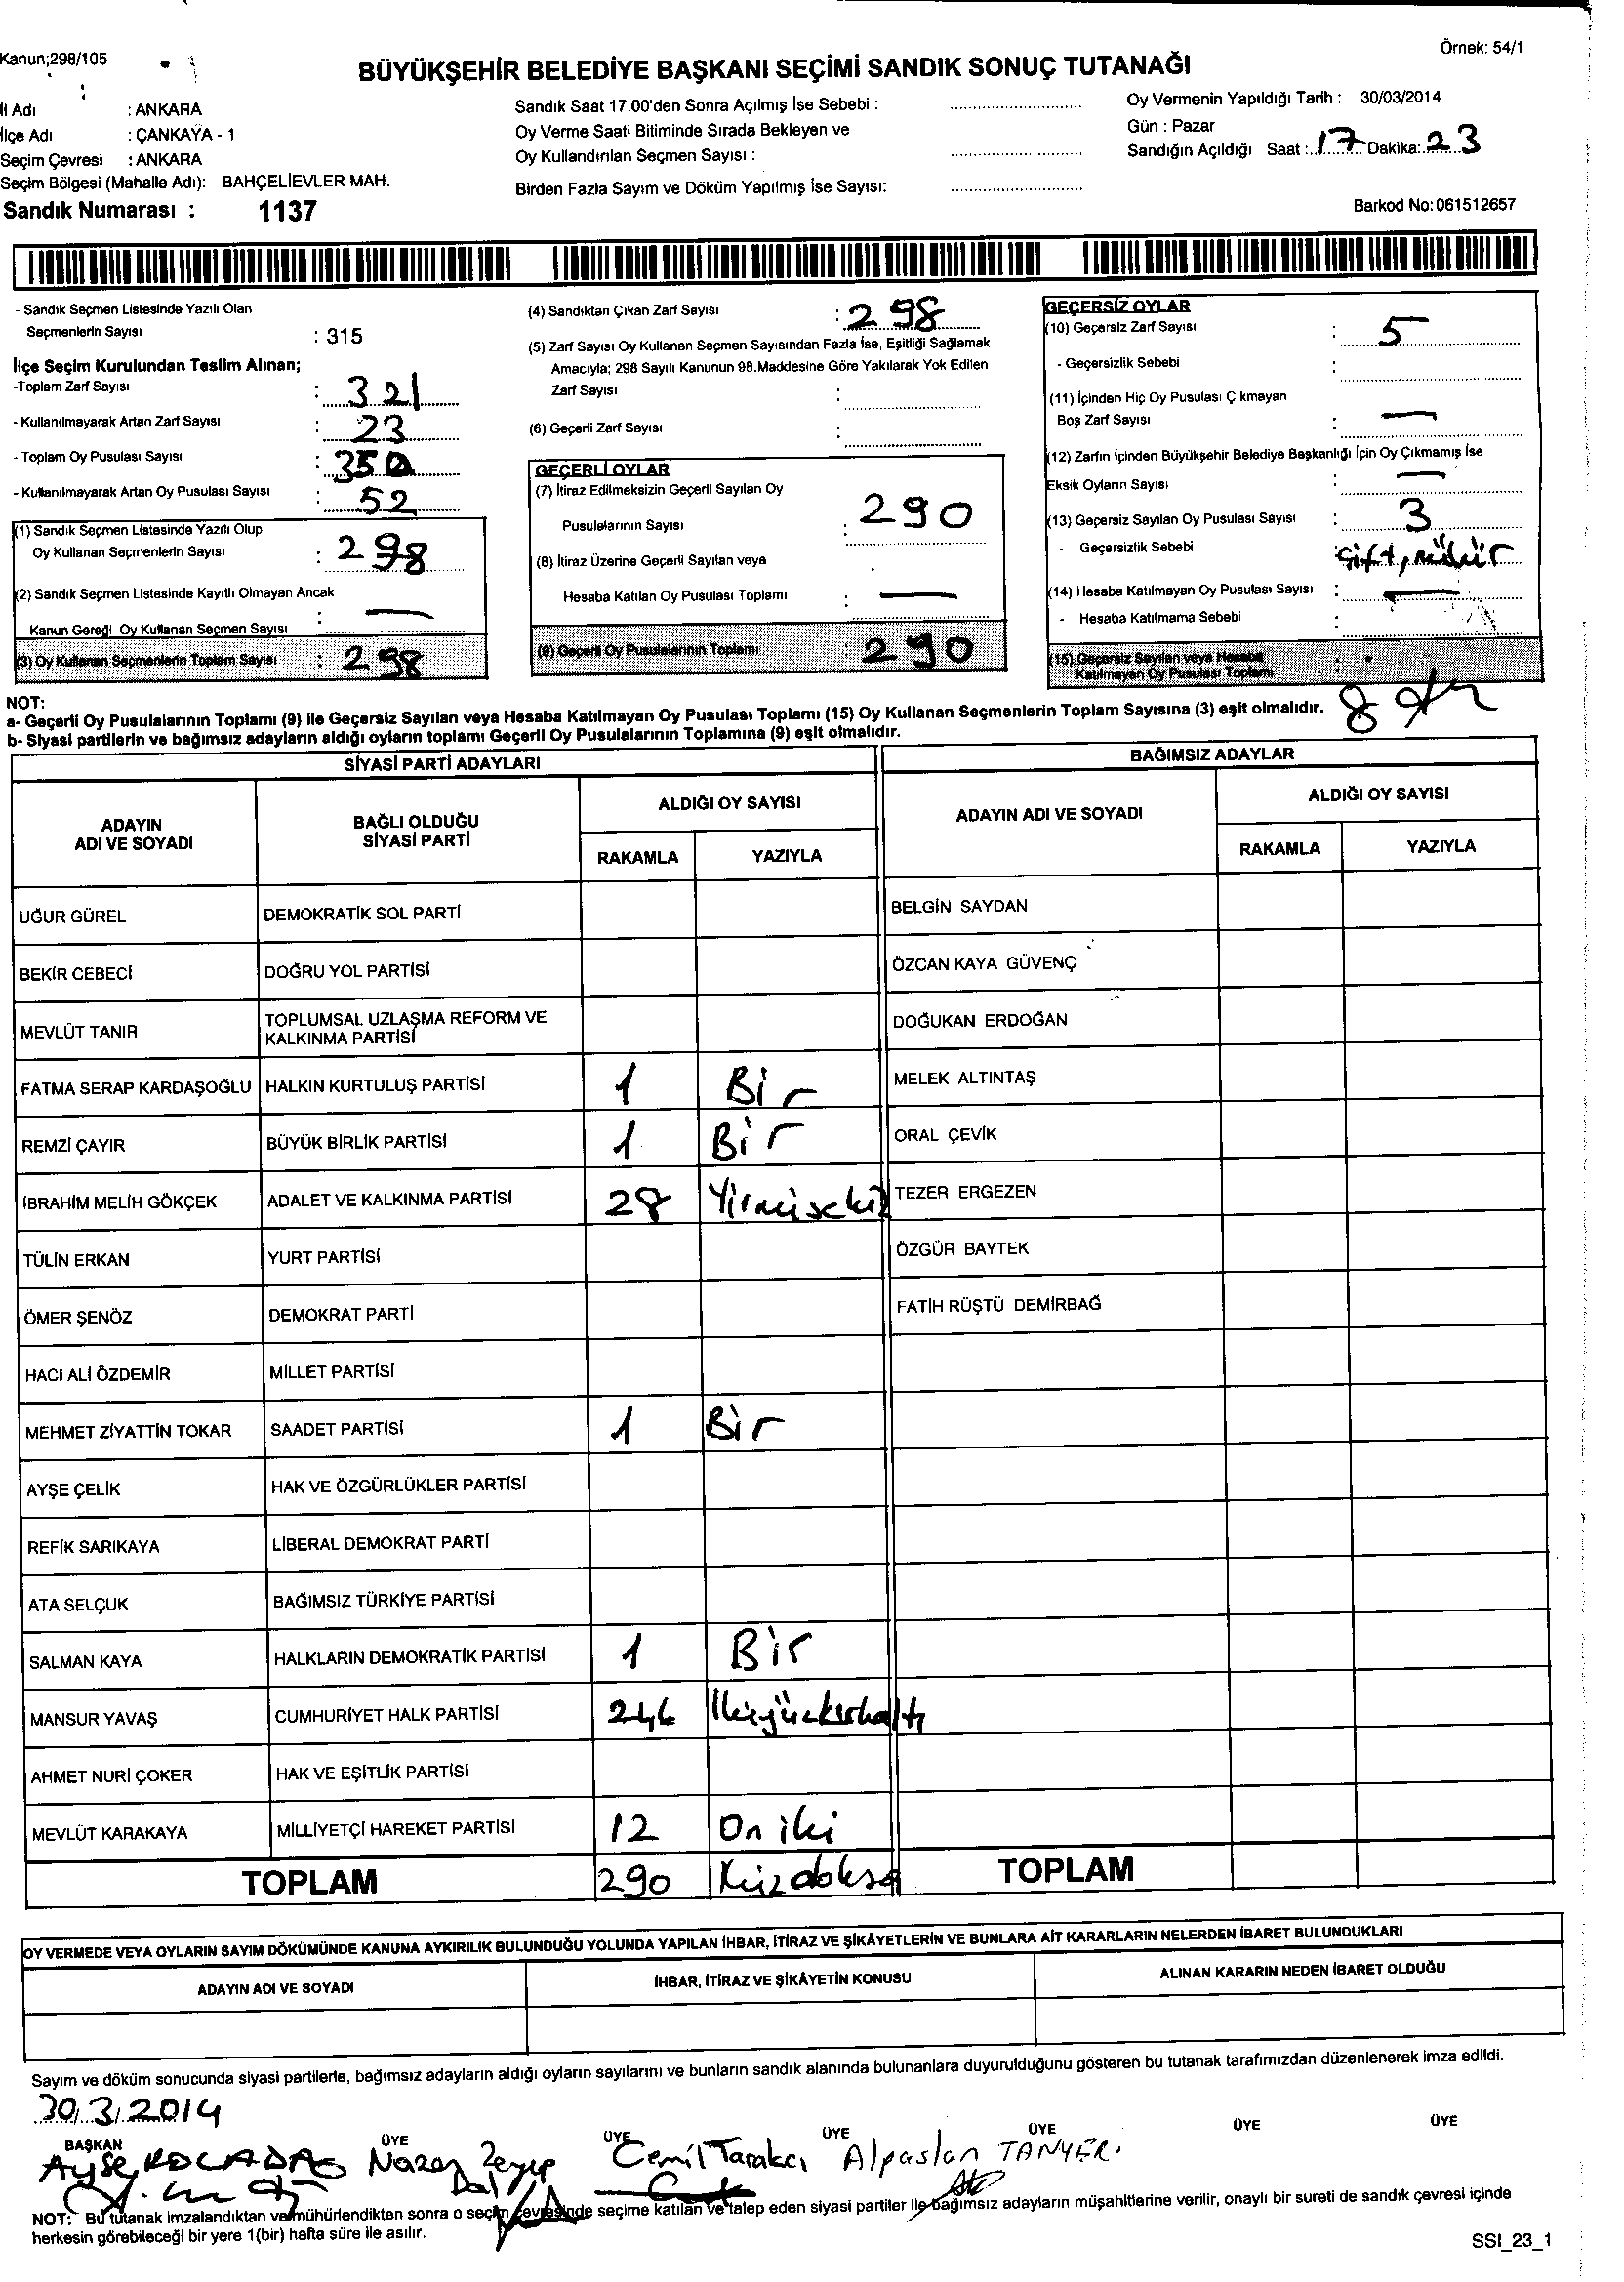 Kanun;298/105
Örnek: 54/1
BÜYÜKŞEHİR BELEDİYE BAŞKANI SEÇİMİ SANDIK SONUÇ TUTANAĞI
İl Adı : ANKARA
İlçe Adı : ÇANKAYA - 1
Seçim Çevresi : ANKARA
Seçim Bölgesi (Mahalle Adı): BAHÇELİEVLER MAH.
Sandık Numarası : 1137
Sandık Saat 17.00'den Sonra Açılmış İse Sebebi :
Oy Verme Saati Bitiminde Sırada Bekleyen ve
Oy Kullandırılan Seçmen Sayısı :
Birden Fazla Sayım ve Döküm Yapılmış İse Sayısı:
Oy Vermenin Yapıldığı Tarih : 30/03/2014
Gün : Pazar
Sandığın Açıldığı Saat : 17 Dakika: 23
Barkod No: 061512657
- Sandık Seçmen Listesinde Yazılı Olan
Seçmenlerin Sayısı : 315
İlçe Seçim Kurulundan Teslim Alınan;
-Toplam Zarf Sayısı : 321
- Kullanılmayarak Artan Zarf Sayısı : 23
- Toplam Oy Pusulası Sayısı : 350
- Kullanılmayarak Artan Oy Pusulası Sayısı : 52
(1) Sandık Seçmen Listesinde Yazılı Olup
Oy Kullanan Seçmenlerin Sayısı : 298
(2) Sandık Seçmen Listesinde Kayıtlı Olmayan Ancak
Kanun Gereği Oy Kullanan Seçmen Sayısı : —
(3) Oy Kullanan Seçmenlerin Toplam Sayısı : 298
(4) Sandıktan Çıkan Zarf Sayısı : 298
(5) Zarf Sayısı Oy Kullanan Seçmen Sayısından Fazla İse, Eşitliği Sağlamak
Amacıyla; 298 Sayılı Kanunun 98.Maddesine Göre Yakılarak Yok Edilen
Zarf Sayısı :
(6) Geçerli Zarf Sayısı :
GEÇERLİ OYLAR
(7) İtiraz Edilmeksizin Geçerli Sayılan Oy
Pusulalarının Sayısı : 290
(8) İtiraz Üzerine Geçerli Sayılan veya
Hesaba Katılan Oy Pusulası Toplamı : —
(9) Geçerli Oy Pusulalarının Toplamı : 290
GEÇERSİZ OYLAR
(10) Geçersiz Zarf Sayısı : 5
- Geçersizlik Sebebi :
(11) İçinden Hiç Oy Pusulası Çıkmayan
Boş Zarf Sayısı : —
(12) Zarfın İçinden Büyükşehir Belediye Başkanlığı İçin Oy Çıkmamış İse
Eksik Oyların Sayısı : —
(13) Geçersiz Sayılan Oy Pusulası Sayısı : 3
- Geçersizlik Sebebi : Çift, mühür
(14) Hesaba Katılmayan Oy Pusulası Sayısı : —
- Hesaba Katılmama Sebebi :
(15) Geçersiz Sayılan veya Hesaba
Katılmayan Oy Pusulası Toplamı : 8
NOT:
a- Geçerli Oy Pusulalarının Toplamı (9) ile Geçersiz Sayılan veya Hesaba Katılmayan Oy Pusulası Toplamı (15) Oy Kullanan Seçmenlerin Toplam Sayısına (3) eşit olmalıdır.
b- Siyasi partilerin ve bağımsız adayların aldığı oyların toplamı Geçerli Oy Pusulalarının Toplamına (9) eşit olmalıdır.
SİYASİ PARTİ ADAYLARI
BAĞIMSIZ ADAYLAR
ADAYIN ADI VE SOYADI
BAĞLI OLDUĞU SİYASİ PARTİ
ALDIĞI OY SAYISI
RAKAMLA YAZIYLA
ADAYIN ADI VE SOYADI
ALDIĞI OY SAYISI
RAKAMLA YAZIYLA
UĞUR GÜREL DEMOKRATİK SOL PARTİ BELGİN SAYDAN
BEKİR CEBECİ DOĞRU YOL PARTİSİ ÖZCAN KAYA GÜVENÇ
MEVLÜT TANIR TOPLUMSAL UZLAŞMA REFORM VE KALKINMA PARTİSİ DOĞUKAN ERDOĞAN
FATMA SERAP KARDAŞOĞLU HALKIN KURTULUŞ PARTİSİ 1 Bir MELEK ALTINTAŞ
REMZİ ÇAYIR BÜYÜK BİRLİK PARTİSİ 1 Bir ORAL ÇEVİK
İBRAHİM MELİH GÖKÇEK ADALET VE KALKINMA PARTİSİ 28 Yirmisekiz TEZER ERGEZEN
TÜLİN ERKAN YURT PARTİSİ ÖZGÜR BAYTEK
ÖMER ŞENÖZ DEMOKRAT PARTİ FATİH RÜŞTÜ DEMİRBAĞ
HACI ALİ ÖZDEMİR MİLLET PARTİSİ
MEHMET ZİYATTİN TOKAR SAADET PARTİSİ 1 Bir
AYŞE ÇELİK HAK VE ÖZGÜRLÜKLER PARTİSİ
REFİK SARIKAYA LİBERAL DEMOKRAT PARTİ
ATA SELÇUK BAĞIMSIZ TÜRKİYE PARTİSİ
SALMAN KAYA HALKLARIN DEMOKRATİK PARTİSİ 1 Bir
MANSUR YAVAŞ CUMHURİYET HALK PARTİSİ 246 İkiyüzkırkaltı
AHMET NURİ ÇOKER HAK VE EŞİTLİK PARTİSİ
MEVLÜT KARAKAYA MİLLİYETÇİ HAREKET PARTİSİ 12 On iki
TOPLAM 290 TOPLAM
OY VERMEDE VEYA OYLARIN SAYIM DÖKÜMÜNDE KANUNA AYKIRILIK BULUNDUĞU YOLUNDA YAPILAN İHBAR, İTİRAZ VE ŞİKÂYETLERİN VE BUNLARA AİT KARARLARIN NELERDEN İBARET BULUNDUKLARI
ADAYIN ADI VE SOYADI İHBAR, İTİRAZ VE ŞİKÂYETİN KONUSU ALINAN KARARIN NEDEN İBARET OLDUĞU
Sayım ve döküm sonucunda siyasi partilerle, bağımsız adayların aldığı oyların sayılarını ve bunların sandık alanında bulunanlara duyurulduğunu gösteren bu tutanak tarafımızdan düzenlenerek imza edildi.
30/3/2014
BAŞKAN ÜYE ÜYE ÜYE ÜYE ÜYE ÜYE
Ayşe KOCADAĞ Nazan Zeynep Dal Cemil Tarakcı Alpaslan TANYERİ
NOT: Bu tutanak imzalandıktan ve mühürlendikten sonra o seçim çevresinde seçime katılan ve talep eden siyasi partiler ile bağımsız adayların müşahitlerine verilir, onaylı bir sureti de sandık çevresi içinde
herkesin görebileceği bir yere 1(bir) hafta süre ile asılır.
SSI_23_1